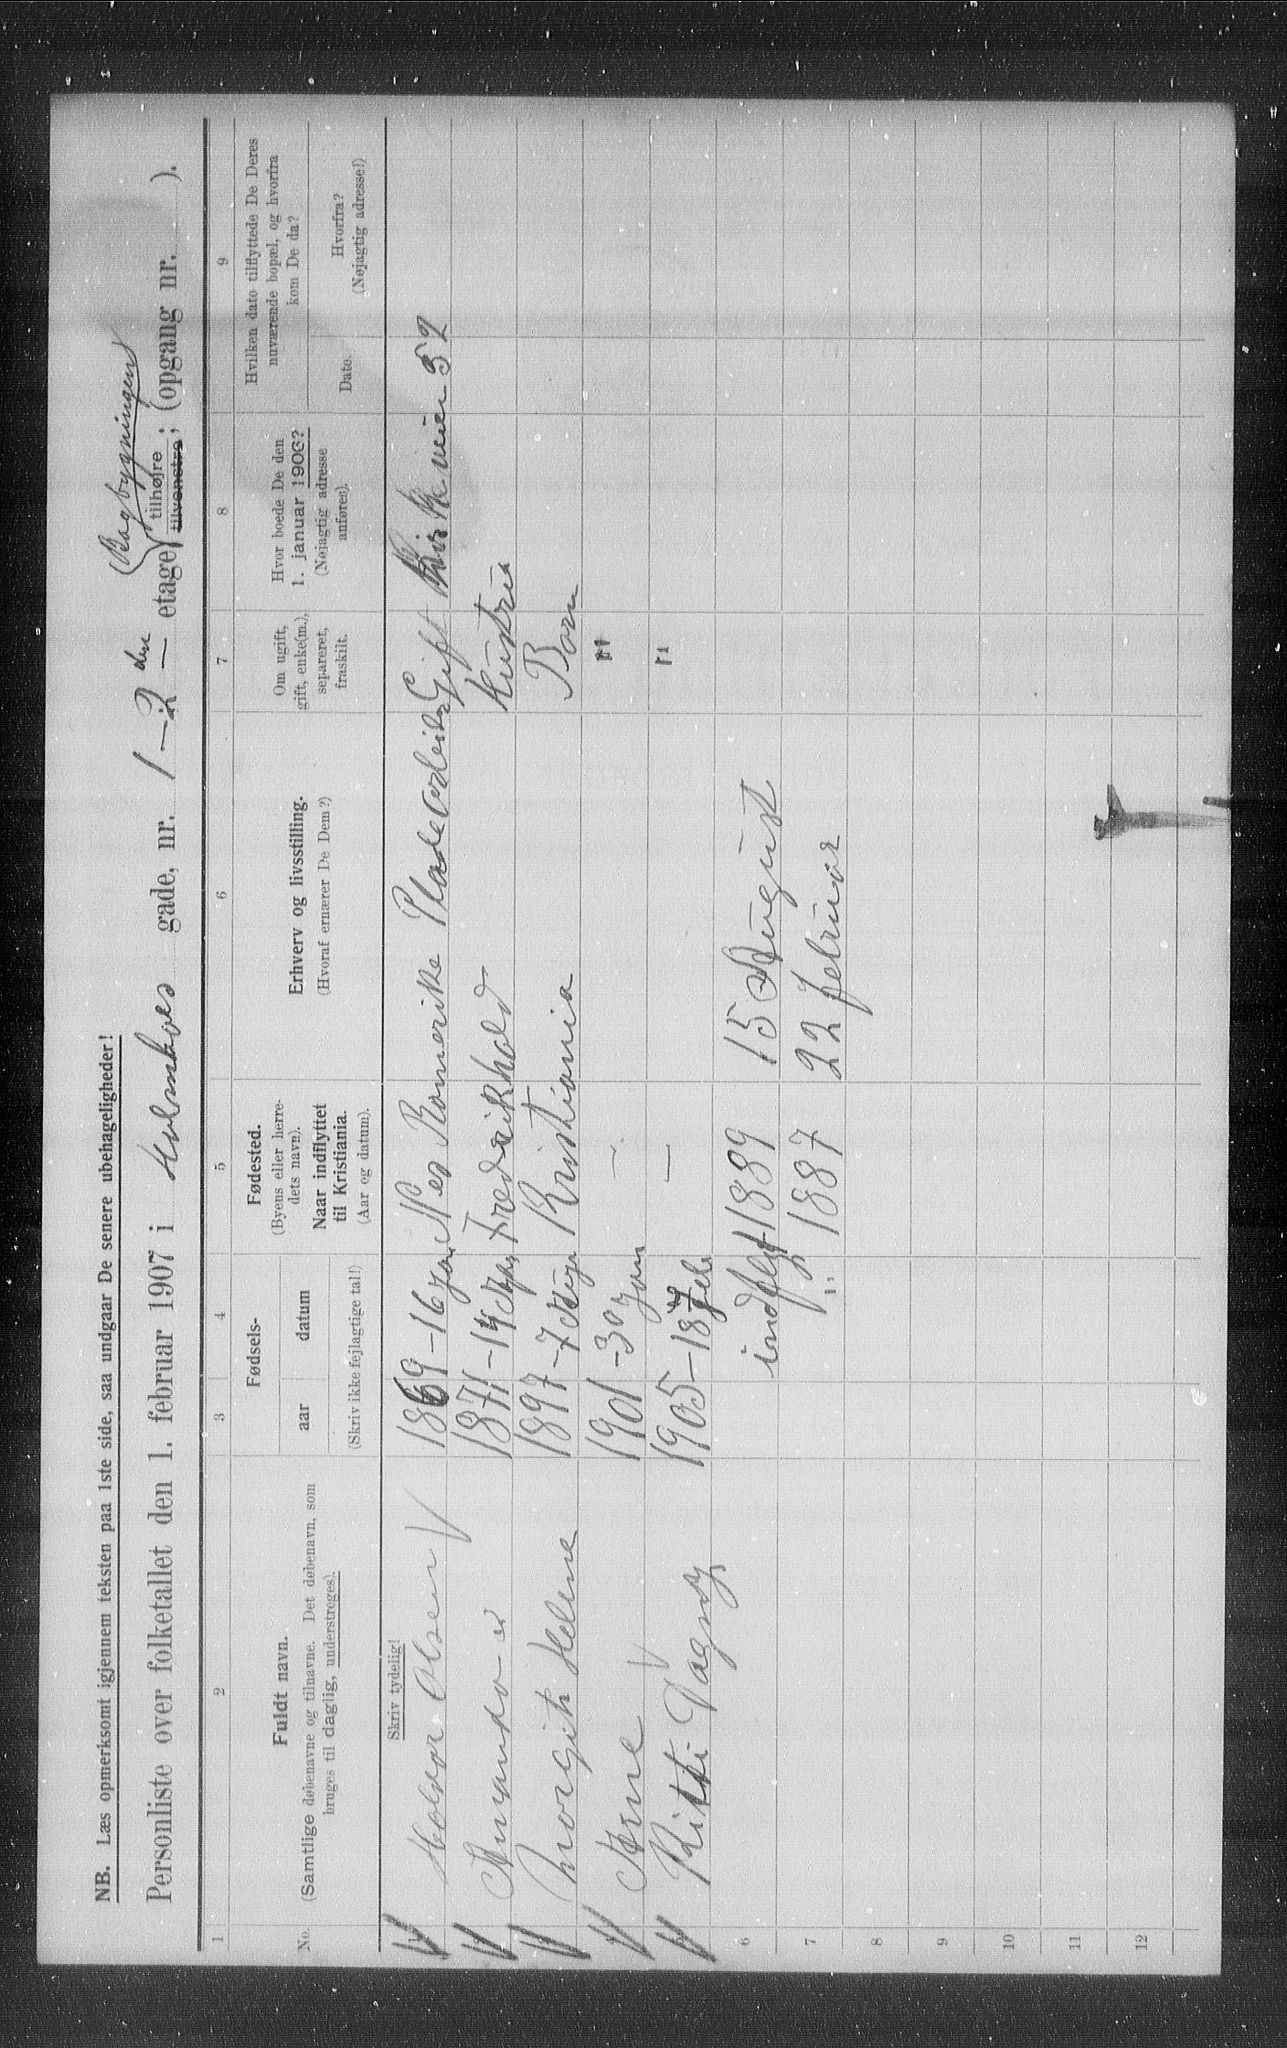 NB. Læs opmerksomt igjennem teksten paa 1ste side, saa undgaar De senere ubehageligheder!
(Bagbygningen)
Personliste over folketallet den 1. februar 1907 i Holmboes gade, nr. 1 – 2 den – etage tilhøjre tilvenstre; (opgang nr. ).
1 2 3 4 5 6 7 8 9
No.
Fuldt navn.
(Samtlige døbenavne og tilnavne. Det døbenavn, som
bruges til daglig, understreges).
Fødsels-
aar datum
(Skriv ikke fejlagtige tal!)
Fødested.
(Byens eller herre-
dets navn).
Naar indflyttet
til Kristiania.
(Aar og datum).
Erhverv og livsstilling.
(Hvoraf ernærer De Dem?)
Om ugift,
gift, enke(m.),
separeret,
fraskilt.
Hvor boede De den
1. januar 1906?
(Nøjagtig adresse
anføres).
Hvilken dato tilflyttede De Deres
nuværende bopæl, og hvorfra
kom De da?
Dato.
Hvorfra?
(Nøjagtig adresse!)
Skriv tydelig!
1 Halvor Olsen 1869 – 16 Jan Nes Romerike Pladearbeider Gift Kirkeveien 52
2 Amanda 1871 – 14 Fredrikhald Hustru
3 Morgith Helene 1897 – 7 Kristiania Born
4 Arne 1901 – 30 Jan – "
5 Kitti Dagny 1905 – 18 feb — "
6 indflyt 1889 15 August
7 " 1887 22 februar
8
9
10
11
12